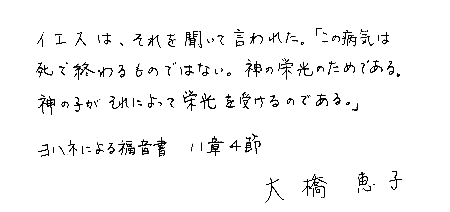 イエスは、それを聞いて言われた。「この病気は
死で終わるものではない。神の栄光のためである。
神の子がそれによって栄光を受けるのである。」
ヨハネによる福音書 11章4節
大橋 恵子